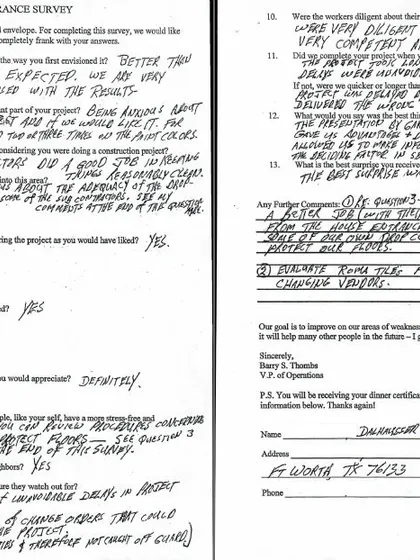 RANCE SURVEY
d envelope. For completing this survey, we would like
completely frank with your answers.
the way you first envisioned it? BETTER THAN
EXPECTED. WE ARE VERY
SED WITH THE RESULTS
nt part of your project? BEING ANXIOUS ABOUT
EST AND IF WE WOULD LIKE IT. FOR
TWO OR THREE TIMES ON THE PAINT COLORS.
onsidering you were doing a construction project?
TORS DID A GOOD JOB IN KEEPING
THINGS REASONABLY CLEAN.
into this area?
US ABOUT THE ADEQUACY OF THE DROP
SOME OF THE SUB CONTRACTORS. SEE MY
COMMENTS AT THE END OF THE QUESTION
ring the project as you would have liked? YES.
d? YES
you would appreciate? DEFINITELY.
ple, like your self, have a more stress-free and
YOU CAN REVIEW PROCEDURES CONCERNING
PROTECT FLOORS — SEE QUESTION 3
THE END OF THIS SURVEY.
ghbors? YES
ure they watch out for?
OF UNAVOIDABLE DELAYS IN PROJECT
OF CHANGE ORDERS THAT COULD
THE PROJECT.
& THEREFORE NOT CAUGHT OFF GUARD)
10. Were the workers diligent about their
WERE VERY DILIGENT
VERY COMPETENT
11. Did we complete your project when y
THE PROJECT TOOK
DELAYS WERE UNAVOID
If not, were we quicker or longer than
PROJECT WAS DELAYED
DELIVERED THE WRONG
12. What would you say was the best thin
THE PRESENTATION BY
GAVE US ADVANTAGE
ALLOWED US TO MAKE INFO
THE DECIDING FACTOR IN SE
13. What is the best surprise you receive
THE BEST SURPRISE W
Any Further Comments: ① RE: QUESTION 3-
A BETTER JOB (WITH THE
FROM THE HOUSE ENTRANC
SOME OF OUR OWN DROP C
PROTECT OUR FLOORS.
② EVALUATE ROMA TILES
CHANGING VENDORS.
Our goal is to improve on our areas of weakness
it will help many other people in the future – I
Sincerely,
Barry S. Thombs
V.P. of Operations
P.S. You will be receiving your dinner certifica
information below. Thanks again!
Name DALHAUSSER
Address
FT WORTH, TX 76133
Phone